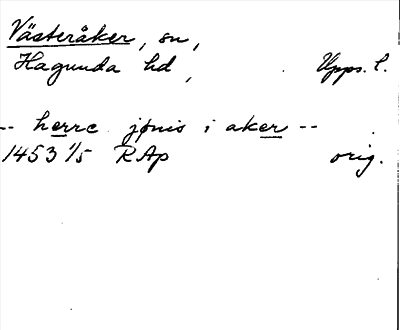 Västeråker, sn,
Hagunda hd, Upps. l.
-- herre jönis i aker --
1453 1/5 RAp orig.